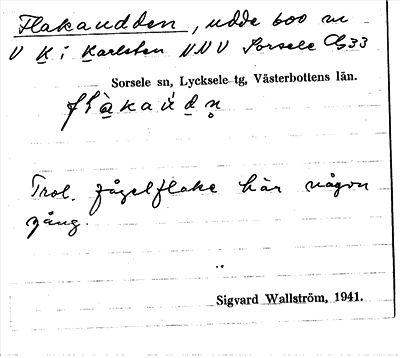 Flakaudden, udde 600 m
V K i Karlsten NNV Sorsele Gb33
Sorsele sn, Lycksele tg, Västerbottens län.
Trol. fågelflake här någon
gång.
Sigvard Wallström, 1941.